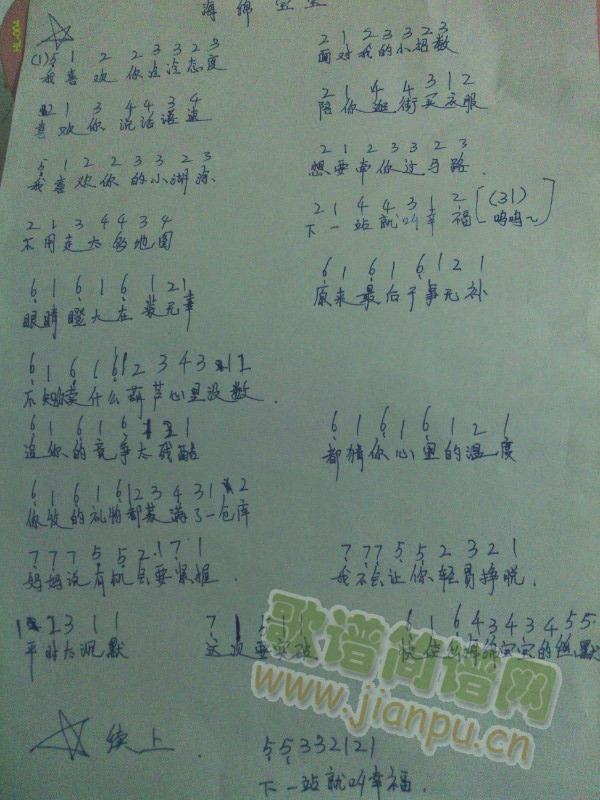 海绵宝宝
(1) 5 1 2 2 3 3 2 3
我喜欢你点点态度
2 1 2 3 3 2 3
面对我的小招数
2 1 3 4 4 3 4
喜欢你说话
2 1 4 4 3 1 2
陪你逛街买衣服
5 1 2 2 3 3 2 3
我喜欢你的小湖涂
2 1 2 3 3 2 3
想要带你过马路
2 1 3 4 4 3 4
不用走大的地图
2 1 4 4 3 1 2 (31)
下一站就叫幸福 呜呜~
6 1 6 1 6 1 2 1
眼睛瞪大在装无辜
6 1 6 1 6 1 2 1
原来最后于事无补
6 1 6 1 6 1 2 3 4 3
什么葫芦心里没数
6 1 6 1 6 1
追你的竞争太残酷
6 1 6 1 6 1 2 1
都猜你心里的温度
6 1 6 1 6 1 2 3 4 3 1 2
你收的礼物都装满了一仓库
7 7 7 5 5 2 1 7 1
妈妈说有机会要紧握
7 7 7 5 5 2 3 2 1
我不会让你轻易挣脱
2 3 1 1
平时太沉默
7 1
这次要
6 1 6 4 3 4 3 4 5 5
宝宝的幽默
续上
5 5 3 3 2 1 2 1
下一站就叫幸福
歌谱简谱网
www.jianpu.cn
HL-004